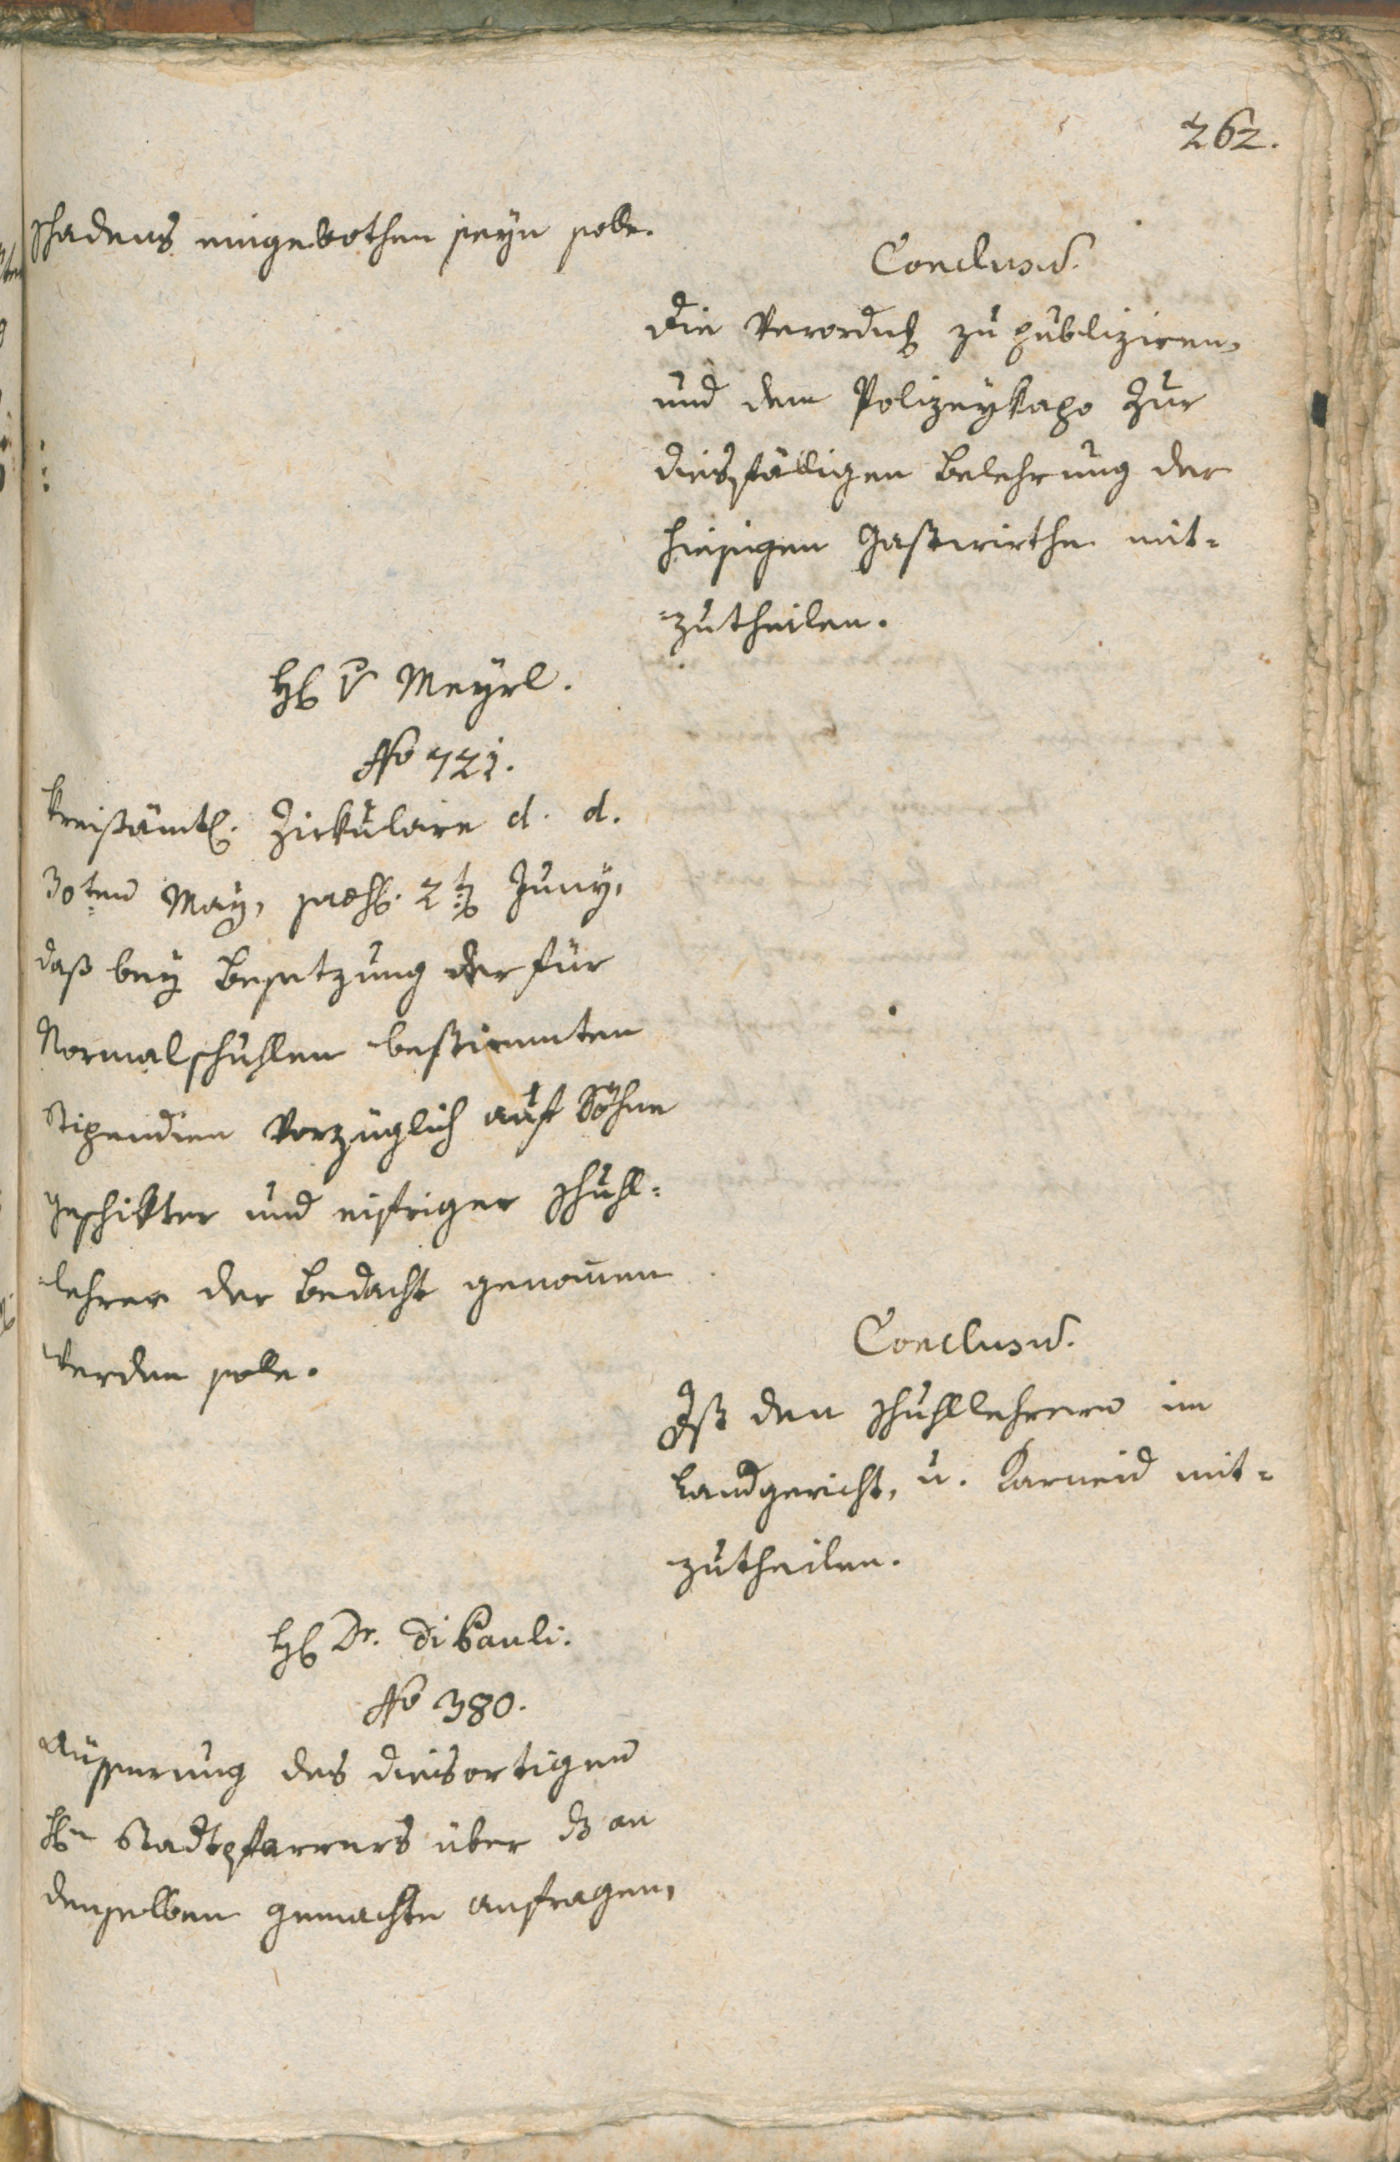 262.
Schadens eingebothen seyn solle.
Conclusum.
Die Verordng zu publiziren,
und dem Polizeykapo zur
diesfälligen Belehrung der
hiesigen Gastwirthe mit-
zutheilen.
H: v Meyrl.
No 721.
Kreisämtl. Zirkulare d. d.
30ten May, 2t Juny,
daß bey Besetzung der für
Normalschuhlen bestimmten
Stipendien vorzüglich auf Söhne
geschikter und eifriger Schuhl-
lehrer der Bedacht genommen
werden solle.
Conclusum.
Ist den Schuhllehrern im
Landgericht, u. Karneid mit-
zutheilen.
H: Dr. Di Pauli.
No 380.
Äusserung des diesortigen
Hn Stadtpfarrers über die an
denselben gemachte anfragen,